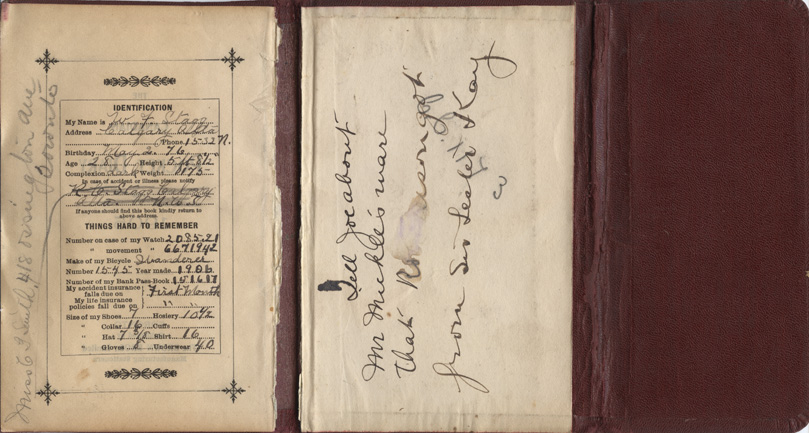 IDENTIFICATION
My Name is W. J. Stagg
Address Calgary Alta
Phone 1532 N.
Birthday May 2. 76
Age 28 Height 5 ft 8½
Complexion dark Weight 175
In case of accident or illness please notify
R. C. Stagg
Alta.
If anyone should find this book kindly return to
above address.
THINGS HARD TO REMEMBER
Number on case of my Watch 2085.21
" movement " 6671942
Make of my Bicycle Wanderer
Number 1545 Year made 1903
Number of my Bank Pass-Book 151617
My accident insurance
falls due on First Month
My life insurance
policies fall due on " "
Size of my Shoes 7 Hosiery 10½
" Collar 16 Cuffs
" Hat 7 Shirt 16
" Gloves 8 Underwear 40
Miss C. I. Smith, 418 Ossington ave
Toronto
Tell Joe about
Mr Mickle's mare
that got
from Sir Lester Kay